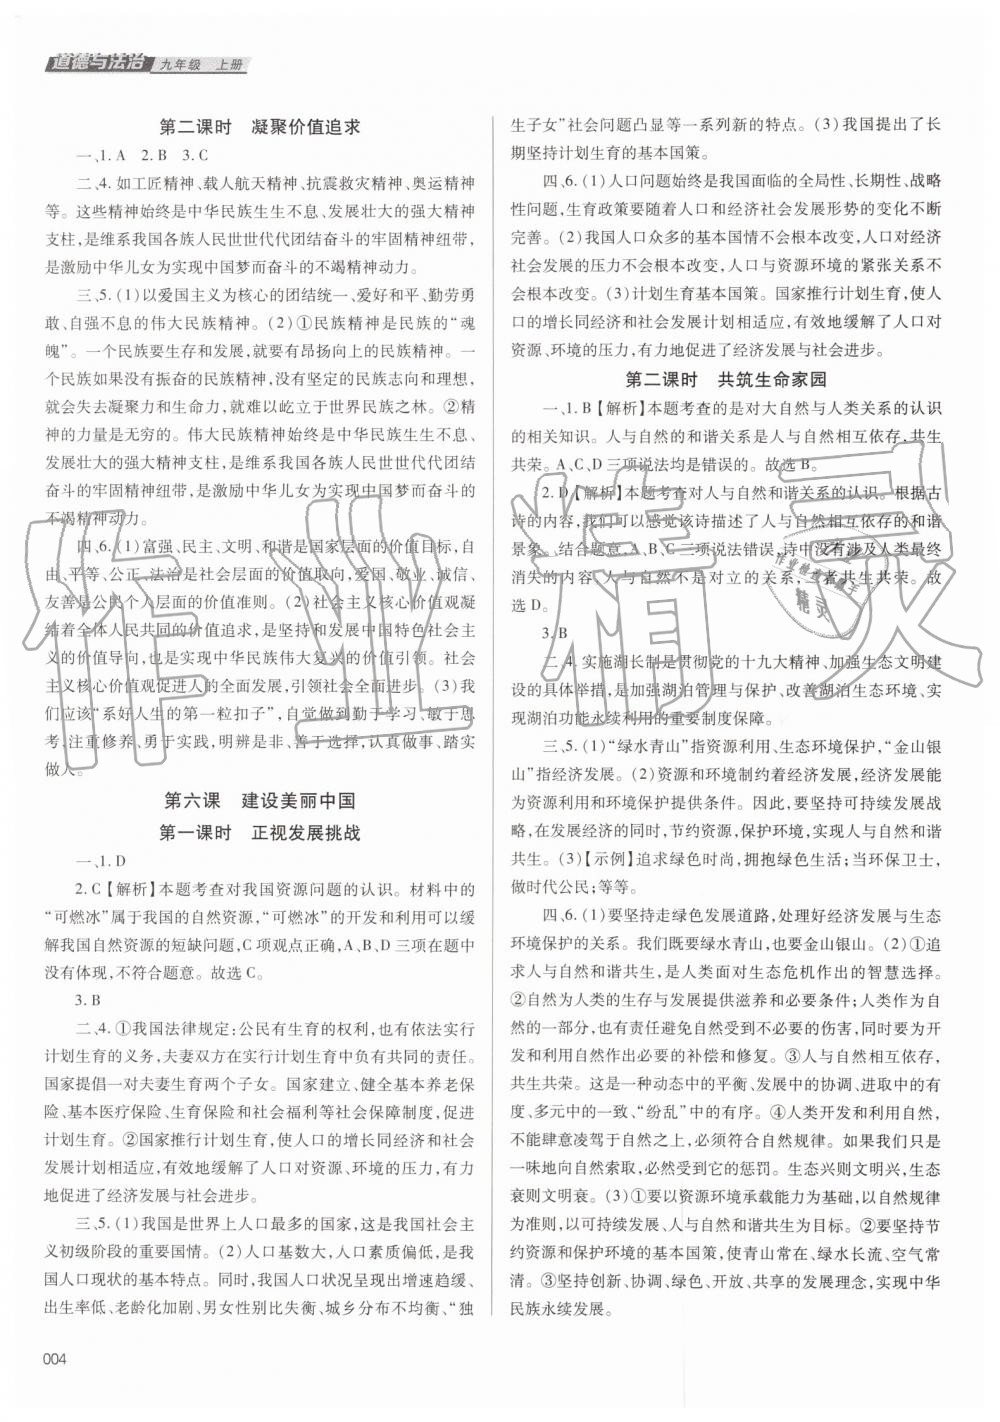 道德与法治 九年级 上册
第二课时 凝聚价值追求
一、1. A 2. B 3. C
二、4. 如工匠精神、载人航天精神、抗震救灾精神、奥运精神
等。这些精神始终是中华民族生生不息、发展壮大的强大精神
支柱,是维系我国各族人民世世代代团结奋斗的牢固精神纽带,
是激励中华儿女为实现中国梦而奋斗的不竭精神动力。
三、5. (1)以爱国主义为核心的团结统一、爱好和平、勤劳勇
敢、自强不息的伟大民族精神。(2)①民族精神是民族的“魂
魄”。一个民族要生存和发展,就要有昂扬向上的民族精神。一
个民族如果没有振奋的民族精神,没有坚定的民族志向和理想,
就会失去凝聚力和生命力,就难以屹立于世界民族之林。②精
神的力量是无穷的。伟大民族精神始终是中华民族生生不息、
发展壮大的强大精神支柱,是维系我国各族人民世世代代团结
奋斗的牢固精神纽带,是激励中华儿女为实现中国梦而奋斗的
不竭精神动力。
四、6. (1)富强、民主、文明、和谐是国家层面的价值目标,自
由、平等、公正、法治是社会层面的价值取向,爱国、敬业、诚信、
友善是公民个人层面的价值准则。(2)社会主义核心价值观凝
结着全体人民共同的价值追求,是坚持和发展中国特色社会主
义的价值导向,也是实现中华民族伟大复兴的价值引领。社会
主义核心价值观促进人的全面发展,引领社会全面进步。(3)我
们应该“系好人生的第一粒扣子”,自觉做到勤于学习、敏于思
考,注重修养、勇于实践,明辨是非、善于选择,认真做事、踏实
做人。
第六课 建设美丽中国
第一课时 正视发展挑战
一、1. D
2. C【解析】本题考查对我国资源问题的认识。材料中的
“可燃冰”属于我国的自然资源,“可燃冰”的开发和利用可以缓
解我国自然资源的短缺问题,C 项观点正确,A、B、D 三项在题中
没有体现,不符合题意。故选 C。
3. B
二、4. ①我国法律规定:公民有生育的权利,也有依法实行
计划生育的义务,夫妻双方在实行计划生育中负有共同的责任。
国家提倡一对夫妻生育两个子女。国家建立、健全基本养老保
险、基本医疗保险、生育保险和社会福利等社会保障制度,促进
计划生育。②国家推行计划生育,使人口的增长同经济和社会
发展计划相适应,有效地缓解了人口对资源、环境的压力,有力
地促进了经济发展与社会进步。
三、5. (1)我国是世界上人口最多的国家,这是我国社会主
义初级阶段的重要国情。(2)人口基数大,人口素质偏低,是我
国人口现状的基本特点。同时,我国人口状况呈现出增速趋缓、
出生率低、老龄化加剧、男女性别比失衡、城乡分布不均衡、“独
004
生子女”社会问题凸显等一系列新的特点。(3)我国提出了长
期坚持计划生育的基本国策。
四、6. (1)人口问题始终是我国面临的全局性、长期性、战略
性问题,生育政策要随着人口和经济社会发展形势的变化不断
完善。(2)我国人口众多的基本国情不会根本改变,人口对经济
社会发展的压力不会根本改变,人口与资源环境的紧张关系不
会根本改变。(3)计划生育基本国策。国家推行计划生育,使人
口的增长同经济和社会发展计划相适应,有效地缓解了人口对
资源、环境的压力,有力地促进了经济发展与社会进步。
第二课时 共筑生命家园
一、1. B【解析】本题考查的是对大自然与人类关系的认识
的相关知识。人与自然的和谐关系是人与自然相互依存,共生
共荣。A、C、D 三项说法均是错误的。故选 B。
2. D【解析】本题考查对人与自然和谐关系的认识。根据古
诗的内容,我们可以感觉该诗描述了人与自然相互依存的和谐
景象。结合题意,A、B、C 三项说法错误,诗中没有涉及人类最终
消失的内容,人与自然不是对立的关系,二者共生共荣。故
选 D。
3. B
二、4. 实施湖长制是贯彻党的十九大精神、加强生态文明建
设的具体举措,是加强湖泊管理与保护、改善湖泊生态环境、实
现湖泊功能永续利用的重要制度保障。
三、5. (1)“绿水青山”指资源利用、生态环境保护,“金山银
山”指经济发展。(2)资源和环境制约着经济发展,经济发展能
为资源利用和环境保护提供条件。因此,要坚持可持续发展战
略,在发展经济的同时,节约资源,保护环境,实现人与自然和谐
共生。(3)【示例】追求绿色时尚,拥抱绿色生活;当环保卫士,
做时代公民;等等。
四、6. (1)要坚持走绿色发展道路,处理好经济发展与生态
环境保护的关系。我们既要绿水青山,也要金山银山。(2)①追
求人与自然和谐共生,是人类面对生态危机作出的智慧选择。
②自然为人类的生存与发展提供滋养和必要条件;人类作为自
然的一部分,也有责任避免自然受到不必要的伤害,同时要为开
发和利用自然作出必要的补偿和修复。③人与自然相互依存、
共生共荣。这是一种动态中的平衡、发展中的协调、进取中的有
度、多元中的一致、“纷乱”中的有序。④人类开发和利用自然,
不能肆意凌驾于自然之上,必须符合自然规律。如果我们只是
一味地向自然索取,必然受到它的惩罚。生态兴则文明兴,生态
衰则文明衰。(3)①要以资源环境承载能力为基础,以自然规律
为准则,以可持续发展、人与自然和谐共生为目标。②要坚持节
约资源和保护环境的基本国策,使青山常在、绿水长流、空气常
清。③坚持创新、协调、绿色、开放、共享的发展理念,实现中华
民族永续发展。
作业精灵
精灵